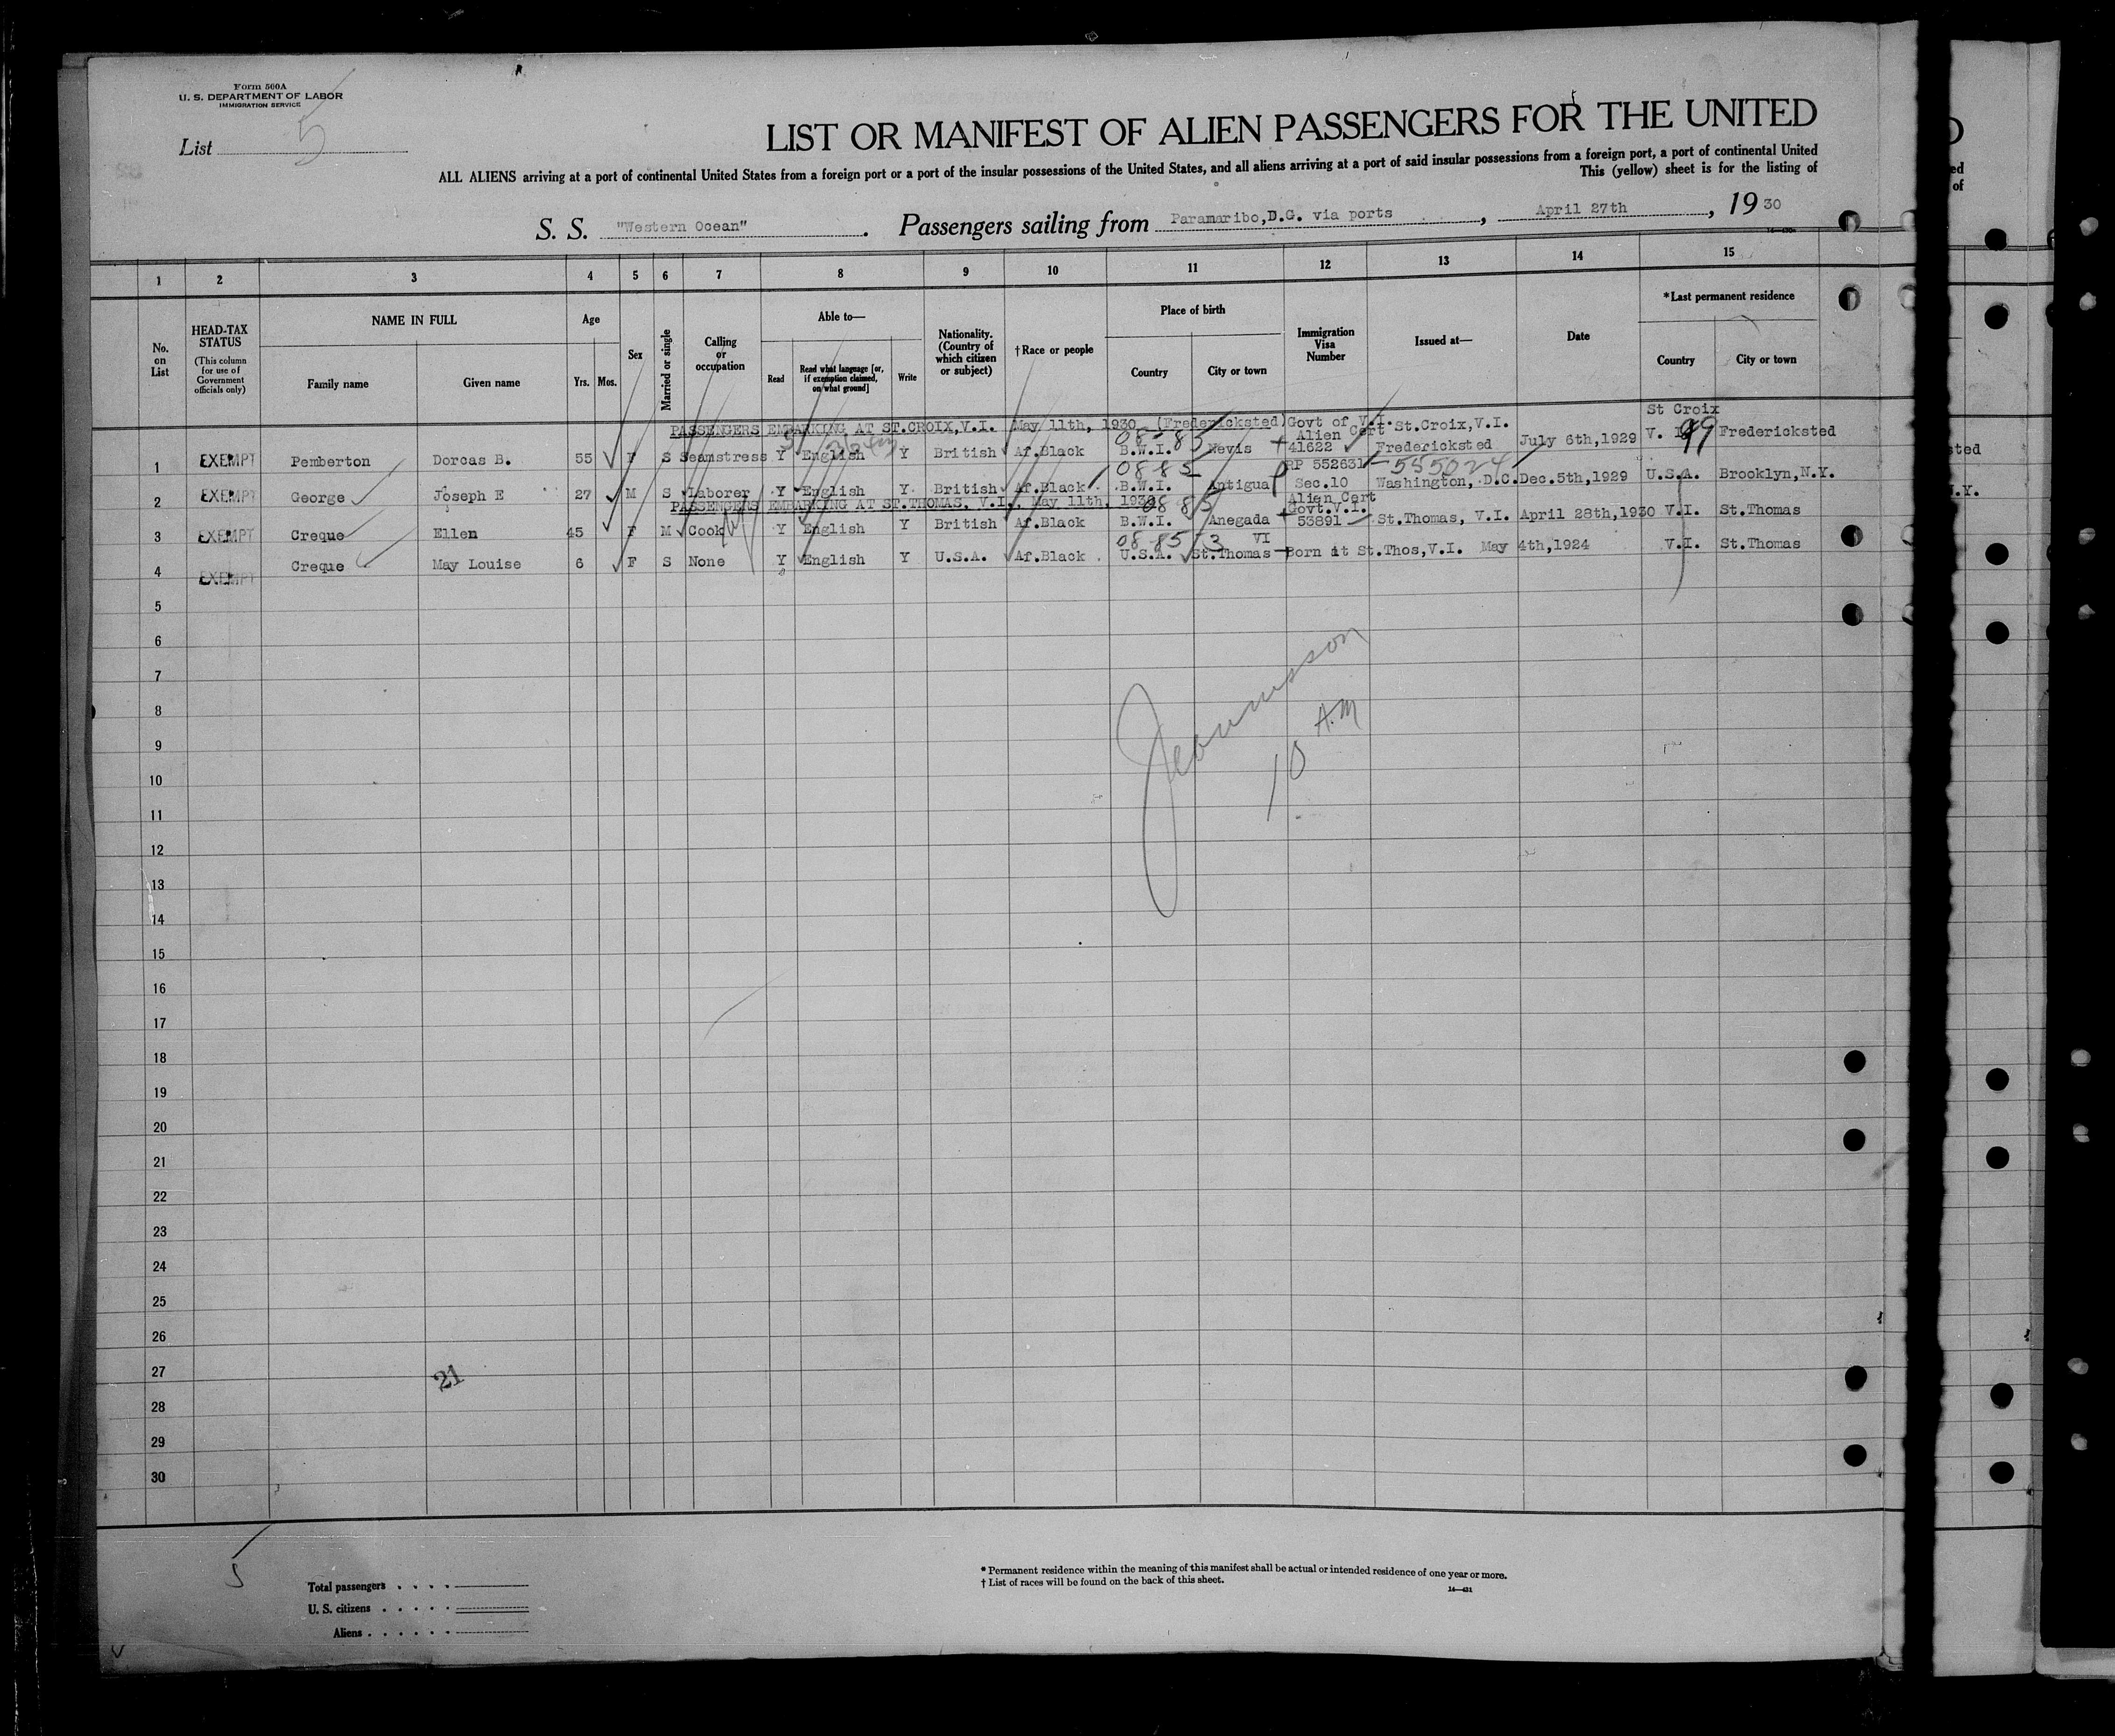 Form 500A
U. S. DEPARTMENT OF LABOR
IMMIGRATION SERVICE
List 5
LIST OR MANIFEST OF ALIEN PASSENGERS FOR THE UNITED
ALL ALIENS arriving at a port of continental United States from a foreign port or a port of the insular possessions of the United States, and all aliens arriving at a port of said insular possessions from a foreign port, a port of continental United
This (yellow) sheet is for the listing of
S. S. "Western Ocean". Passengers sailing from Paramaribo,D.G. via ports, April 27th, 1930
1 2 3 4 5 6 7 8 9 10 11 12 13 14 15
No. on List
HEAD-TAX STATUS
(This column for use of Government officials only)
NAME IN FULL
Family name
Given name
Age
Yrs. Mos.
Sex
Married or single
Calling or occupation
Able to—
Read
Read what language [or, if exemption claimed, on what ground]
Write
Nationality. (Country of which citizen or subject)
†Race or people
Place of birth
Country
City or town
Immigration Visa Number
Issued at—
Date
*Last permanent residence
Country
City or town
PASSENGERS EMBARKING AT ST.CROIX,V.I. May 11th, 1930 (Fredericksted) Govt of V.I. St.Croix,V.I. St Croix
08-85 Alien Cert
1 EXEMPT Pemberton Dorcas B. 55 F S Seamstress Y English Y British Af.Black B.W.I. Nevis 41622 Fredericksted July 6th,1929 V. I. 99 Fredericksted
0885 RP 552631 - 555024
2 EXEMPT George Joseph E 27 M S Laborer Y English Y British Af.Black B.W.I. Antigua Sec.10 Washington, D.C. Dec.5th,1929 U.S.A. Brooklyn,N.Y.
PASSENGERS EMBARKING AT ST.THOMAS, V.I., May 11th, 1930 0885 Alien Cert
Govt.V.I.
3 EXEMPT Creque Ellen 45 F M Cook Y English Y British Af.Black B.W.I. Anegada 53891 St.Thomas, V.I. April 28th,1930 V.I. St.Thomas
0885 3 VI
4 EXEMPT Creque May Louise 6 F S None Y English Y U.S.A. Af.Black U.S.A. St.Thomas Born at St.Thos,V.I. May 4th,1924 V.I. St.Thomas
5
6
7
8
10 A.M
9
10
11
12
13
14
15
16
17
18
19
20
21
22
23
24
25
26
27
21
28
29
30
5
Total passengers
U. S. citizens
Aliens
* Permanent residence within the meaning of this manifest shall be actual or intended residence of one year or more.
† List of races will be found on the back of this sheet.
14—431